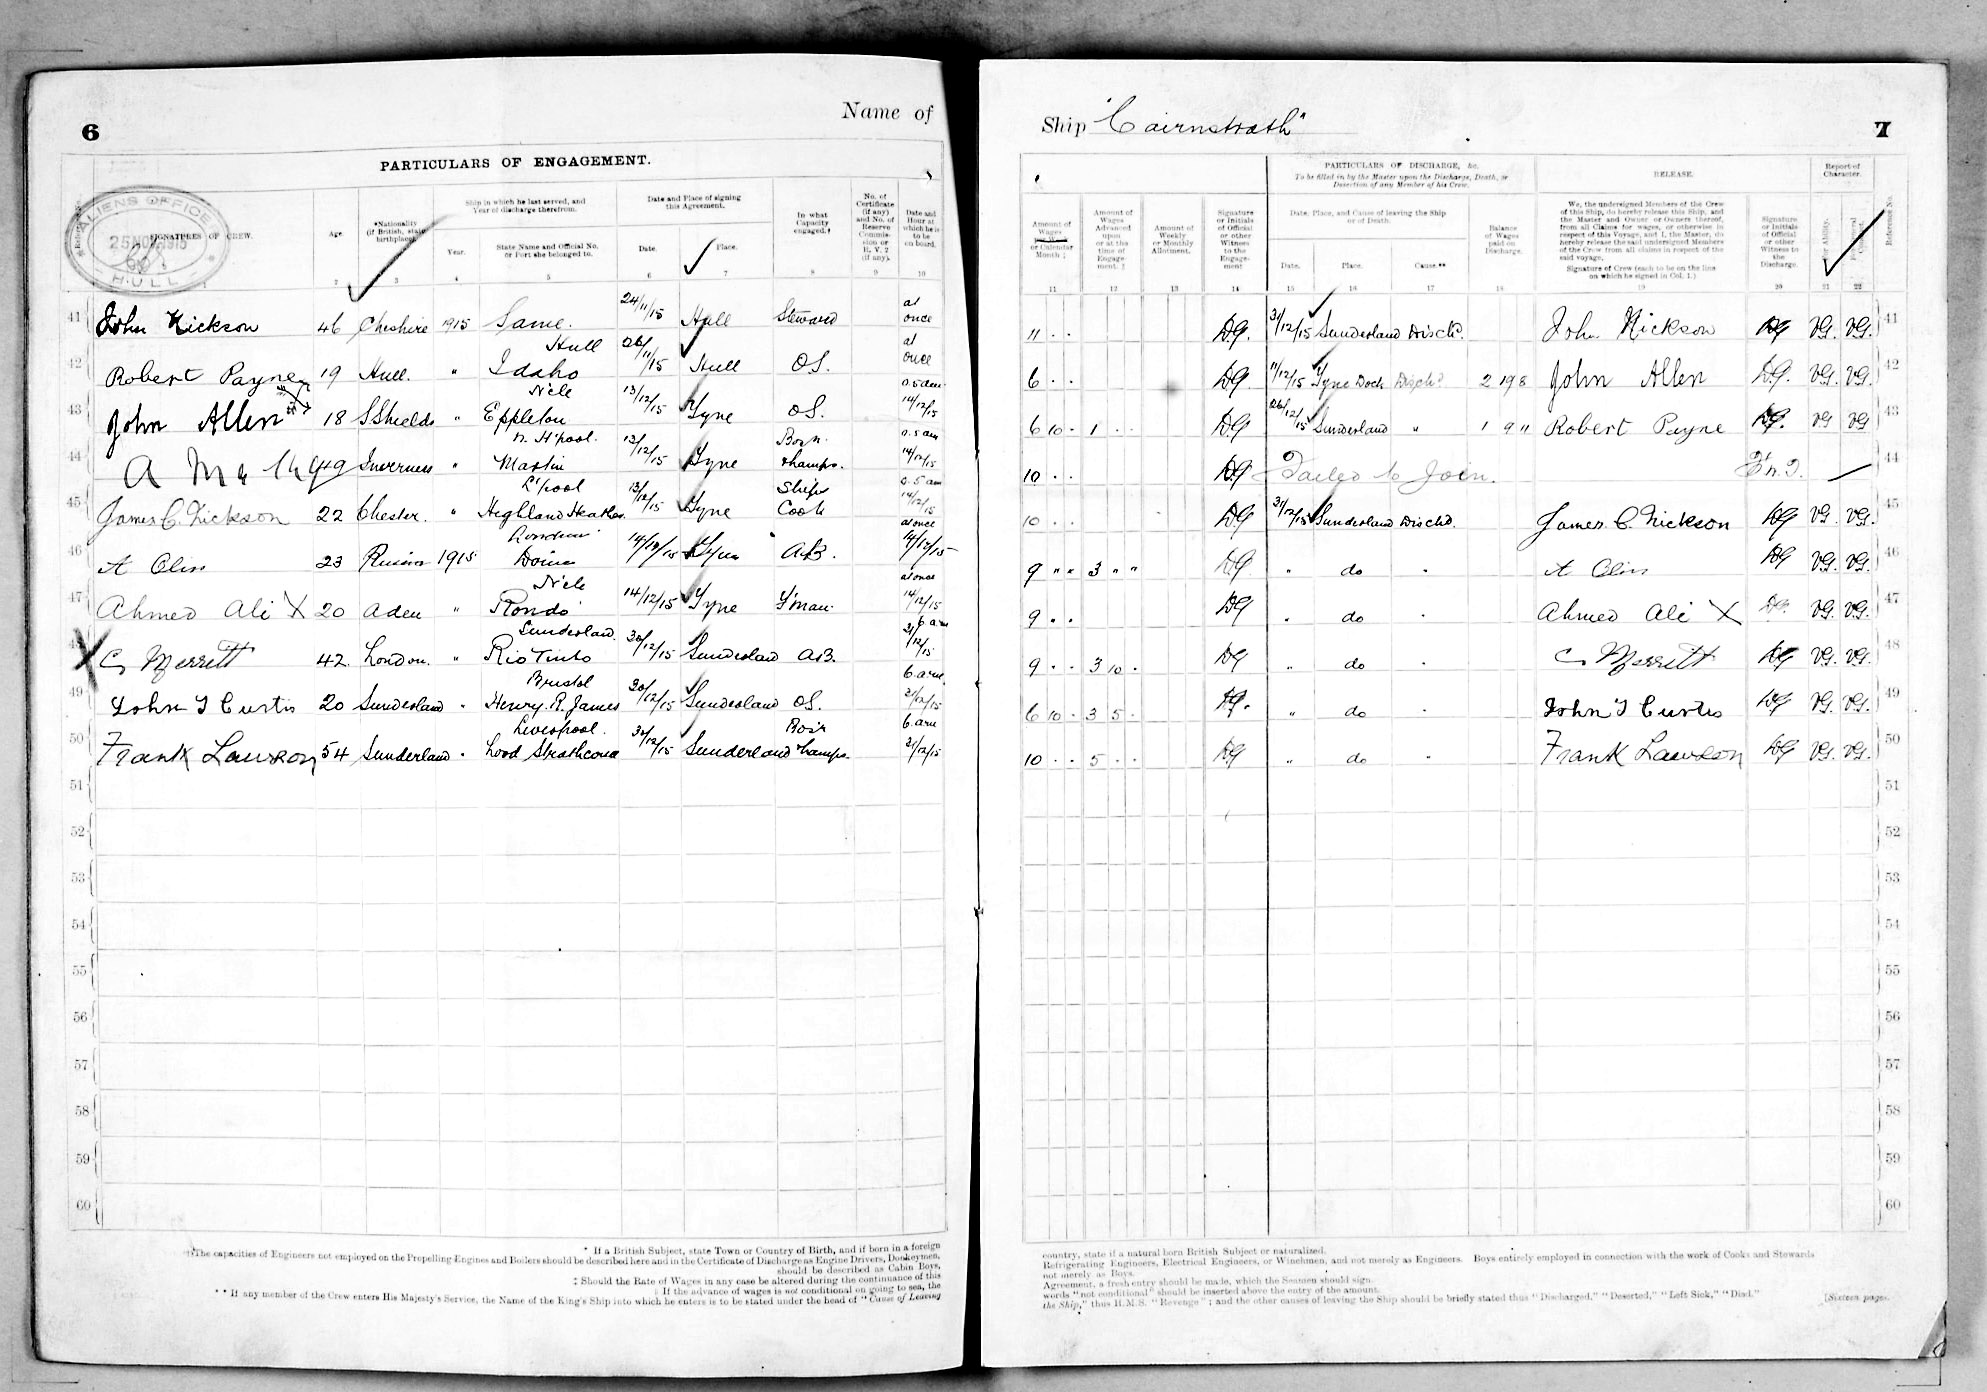 6
Name of
PARTICULARS OF ENGAGEMENT.
ALIENS OFFICER
25 NOV 1915
HULL
SIGNATURES OF CREW.
Age.
*Nationality (if British, state birthplace)
Ship in which he last served, and Year of discharge therefrom.
Year.
State Name and Official No. or Port she belonged to.
Date and Place of signing this Agreement.
Date.
Place.
In what Capacity engaged.†
No. of Certificate (if any) and No. of Reserve Commission or R. V. 2 (if any).
Date and Hour at which he is to be on board.
2 3 4 5 6 7 8 9 10
41 John Nickson 46 Cheshire 1915 Same. 24/11/15 Hull Steward at once
42 Robert Payne 19 Hull. " Hull Idaho 26/11/15 Hull OS. at once
43 John Allen 18 S Shields " N'cle Eppleton 13/12/15 Tyne OS. 5 am 14/12/15
44 A 49 Inverness " N. H'pool. Martin 13/12/15 Tyne Bosn. &lamps. 5 am 14/12/15
45 James C. Nickson 22 Chester. " L'pool Highland Heather 13/12/15 Tyne Ships Cook 5 am 14/12/15
46 A Olin 23 Russia 1915 London 14/12/15 Tyne AB. at once 14/12/15
47 Ahmed Ali X 20 Aden " N'cle Rondo 14/12/15 Tyne F'man. at once 14/12/15
48 C Merrett 42 London. " Sunderland. Rio Tinto 30/12/15 Sunderland AB. 6 am 31/12/15
49 John T Curtis 20 Sunderland " Bristol Henry R. James 30/12/15 Sunderland OS. 6 am. 31/12/15
50 Frank Lawson 54 Sunderland " Liverpool. Lord Strathcona 30/12/15 Sunderland Bosn &lamps. 6 am 31/12/15
51
52
53
54
55
56
57
58
59
60
* If a British Subject, state Town or Country of Birth, and if born in a foreign
†The capacities of Engineers not employed on the Propelling Engines and Boilers should be described here and in the Certificate of Discharge as Engine Drivers, Donkeymen,
should be described as Cabin Boys,
‡ Should the Rate of Wages in any case be altered during the continuance of this
If the advance of wages is not conditional on going to sea, the
** If any member of the Crew enters His Majesty's Service, the Name of the King's Ship into which he enters is to be stated under the head of "Cause of Leaving
Ship "Cairnstrath"
7
PARTICULARS OF DISCHARGE, &c.
To be filled in by the Master upon the Discharge, Death, or Desertion of any Member of his Crew.
RELEASE.
Report of Character.
Amount of Wages or Calendar Month ‡
Amount of Wages Advanced upon or at the time of Engagement. ‡
Amount of Weekly or Monthly Allotment.
Signature or Initials of Official or other Witness to the Engagement
Date, Place, and Cause of leaving the Ship or of Death.
Date.
Place.
Cause.**
Balance of Wages paid on Discharge.
We, the undersigned Members of the Crew of this Ship, do hereby release this Ship, and the Master and Owner or Owners thereof, from all Claims for wages, or otherwise in respect of this Voyage, and I, the Master, do hereby release the said undersigned Members of the Crew from all claims in respect of the said voyage.
Signature of Crew (each to be on the line on which he signed in Col. 1.)
Signature or Initials of Official or other Witness to the Discharge.
For Ability.
Reference No.
11 12 13 14 15 16 17 18 19 20 21 22
11 . . DG. 31/12/15 Sunderland Disch'd. John Nickson DG VG. VG. 41
6 . . DG. 11/12/15 Tyne Dock Disch'd 2 19 8 John Allen DG. VG. VG. 42
6 10 . 1 . . DG 26/12/15 Sunderland " 1 9 11 Robert Payne DG. VG VG. 43
10 . . DG Failed to Join. 44
10 . . DG 31/12/15 Sunderland Disch'd. James. C. Nickson DG VG. VG. 45
9 " " 3 " " DG " do " A Olin DG VG. VG. 46
9 . . DG " do " Ahmed Ali X DG. VG. VG. 47
9 . . 3 10 . DG " do " C Merrett DG VG. VG. 48
6 10 . 3 5 . DG. " do " John T Curtis DG VG. VG. 49
10 . . 5 . . DG " do " Frank Lawson DG VG. VG. 50
51
52
53
54
55
56
57
58
59
60
country, state if a natural born British Subject or naturalized.
Refrigerating Engineers, Electrical Engineers, or Winchmen, and not merely as Engineers. Boys entirely employed in connection with the work of Cooks and Stewards
not merely as Boys.
Agreement, a fresh entry should be made, which the Seamen should sign.
words "not conditional" should be inserted above the entry of the amount.
the Ship," thus H.M.S. "Revenge"; and the other causes of leaving the Ship should be briefly stated thus "Discharged," "Deserted," "Left Sick," "Died."
[Sixteen pages.